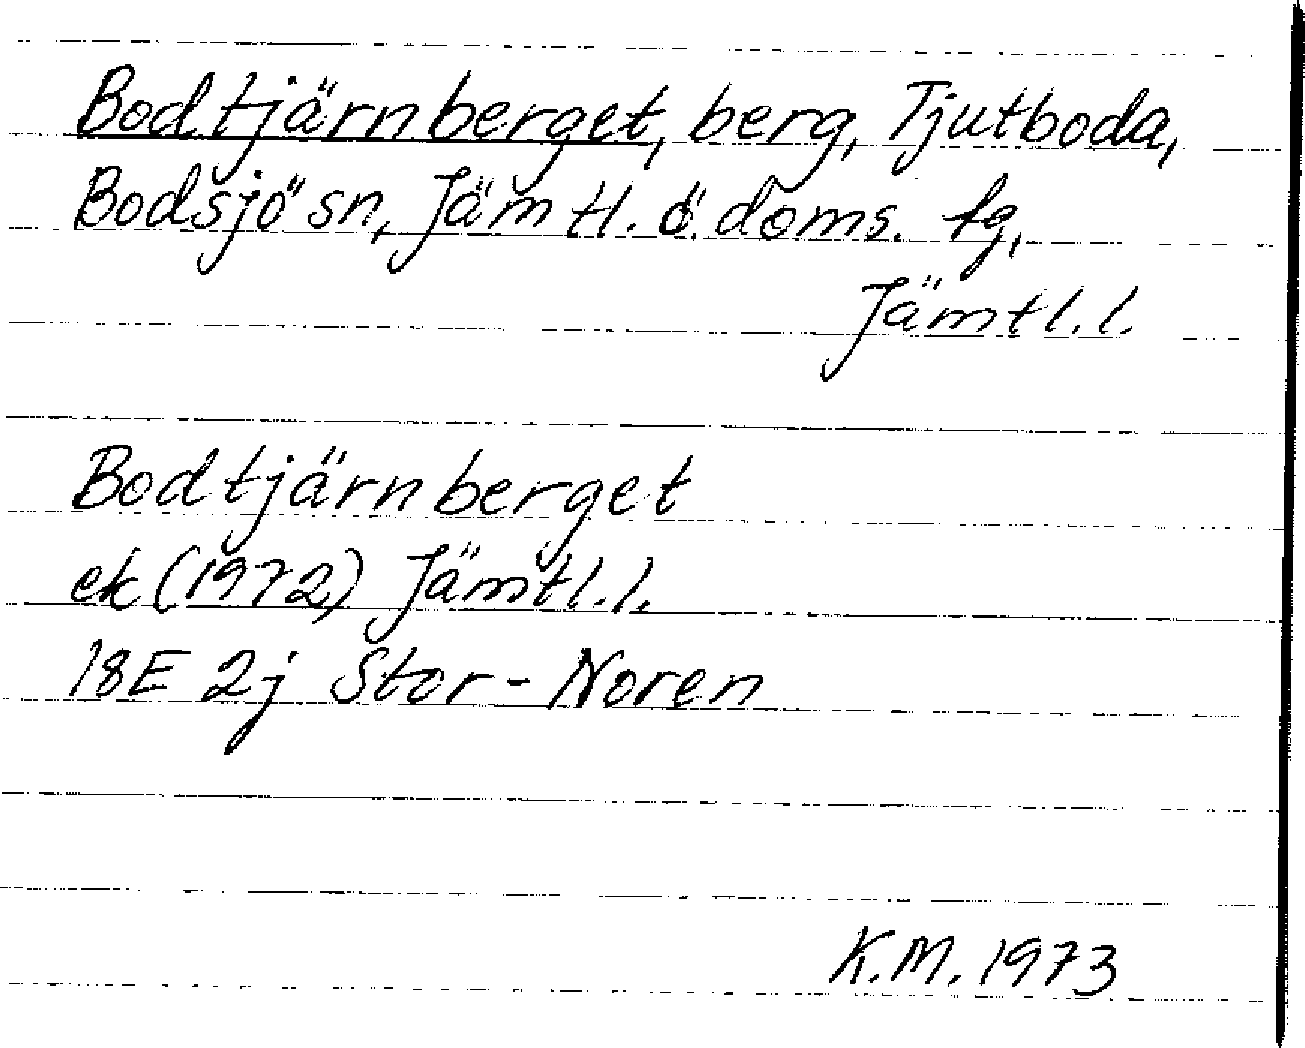 Bodtjärnberget, berg, Tjutboda,
Bodsjö sn, Jämtl. ö. doms. tg,
Jämtl. l.
Bodtjärnberget
ek (1972) Jämtl. l.
18E 2j Stor-Noren
K.M. 1973